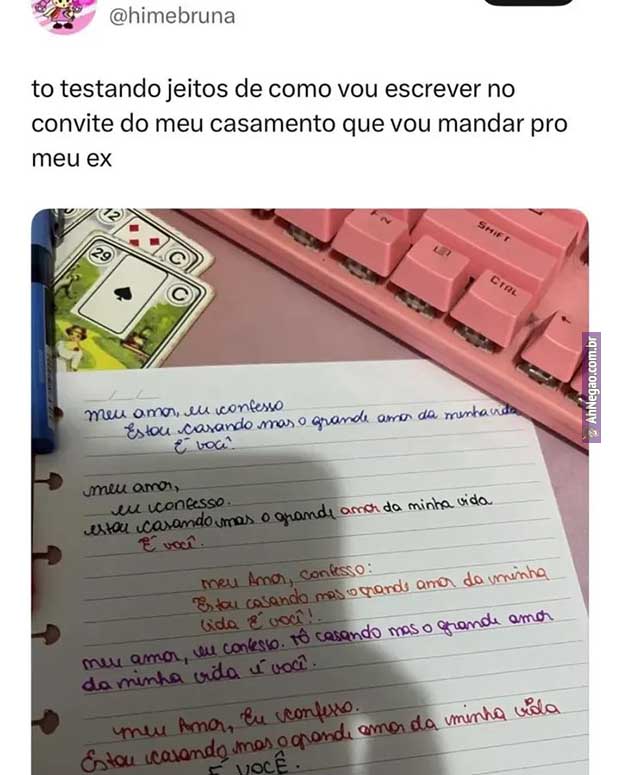 @himebruna
to testando jeitos de como vou escrever no
convite do meu casamento que vou mandar pro
meu ex
12
C
29
C
FN
SHIFT
CTRL
AhNegao.com.br
meu amor, eu confesso
Estou casando mas o grande amor da minha vida
É você.
meu amor,
eu confesso.
estou casando mas o grande amor da minha vida
É você.
meu Amor, confesso:
Estou casando mas o grande amor da minha
vida é você!.
meu amor, eu confesso. tô casando mas o grande amor
da minha vida é você.
meu Amor, Eu confesso.
Estou casando mas o grande amor da minha vida
É VOCÊ.